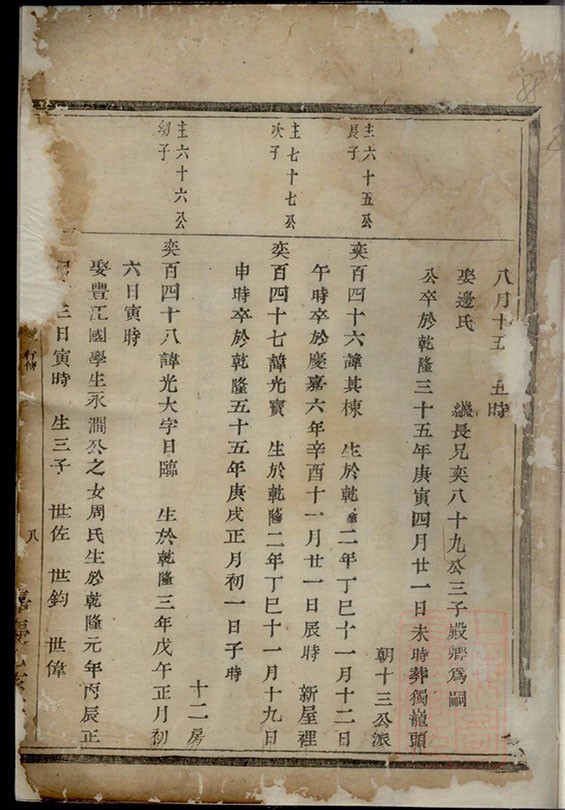 八月十五 丑時
娶邊氏 繼長兄奕八十九公三子殿卿為嗣
公卒於乾隆三十五年庚寅四月廿一日未時葬獨龍頭
朝十三公派
主六十五公
長子
奕百四十六諱其棟 生於乾隆二年丁巳十一月十二日
午時卒於慶嘉六年辛酉十一月廿一日辰時 新屋裡
主七十七公
次子
奕百四十七諱光寶 生於乾隆二年丁巳十一月十九日
申時卒於乾隆五十五年庚戌正月初一日子時
十二房
主六十六公
幼子
奕百四十八諱光大字日臨 生於乾隆三年戊午正月初
六日寅時
娶豐江國學生永澗公之女周氏生於乾隆元年丙辰正
三日寅時 生三子 世佐 世鈞 世偉
行傳
八